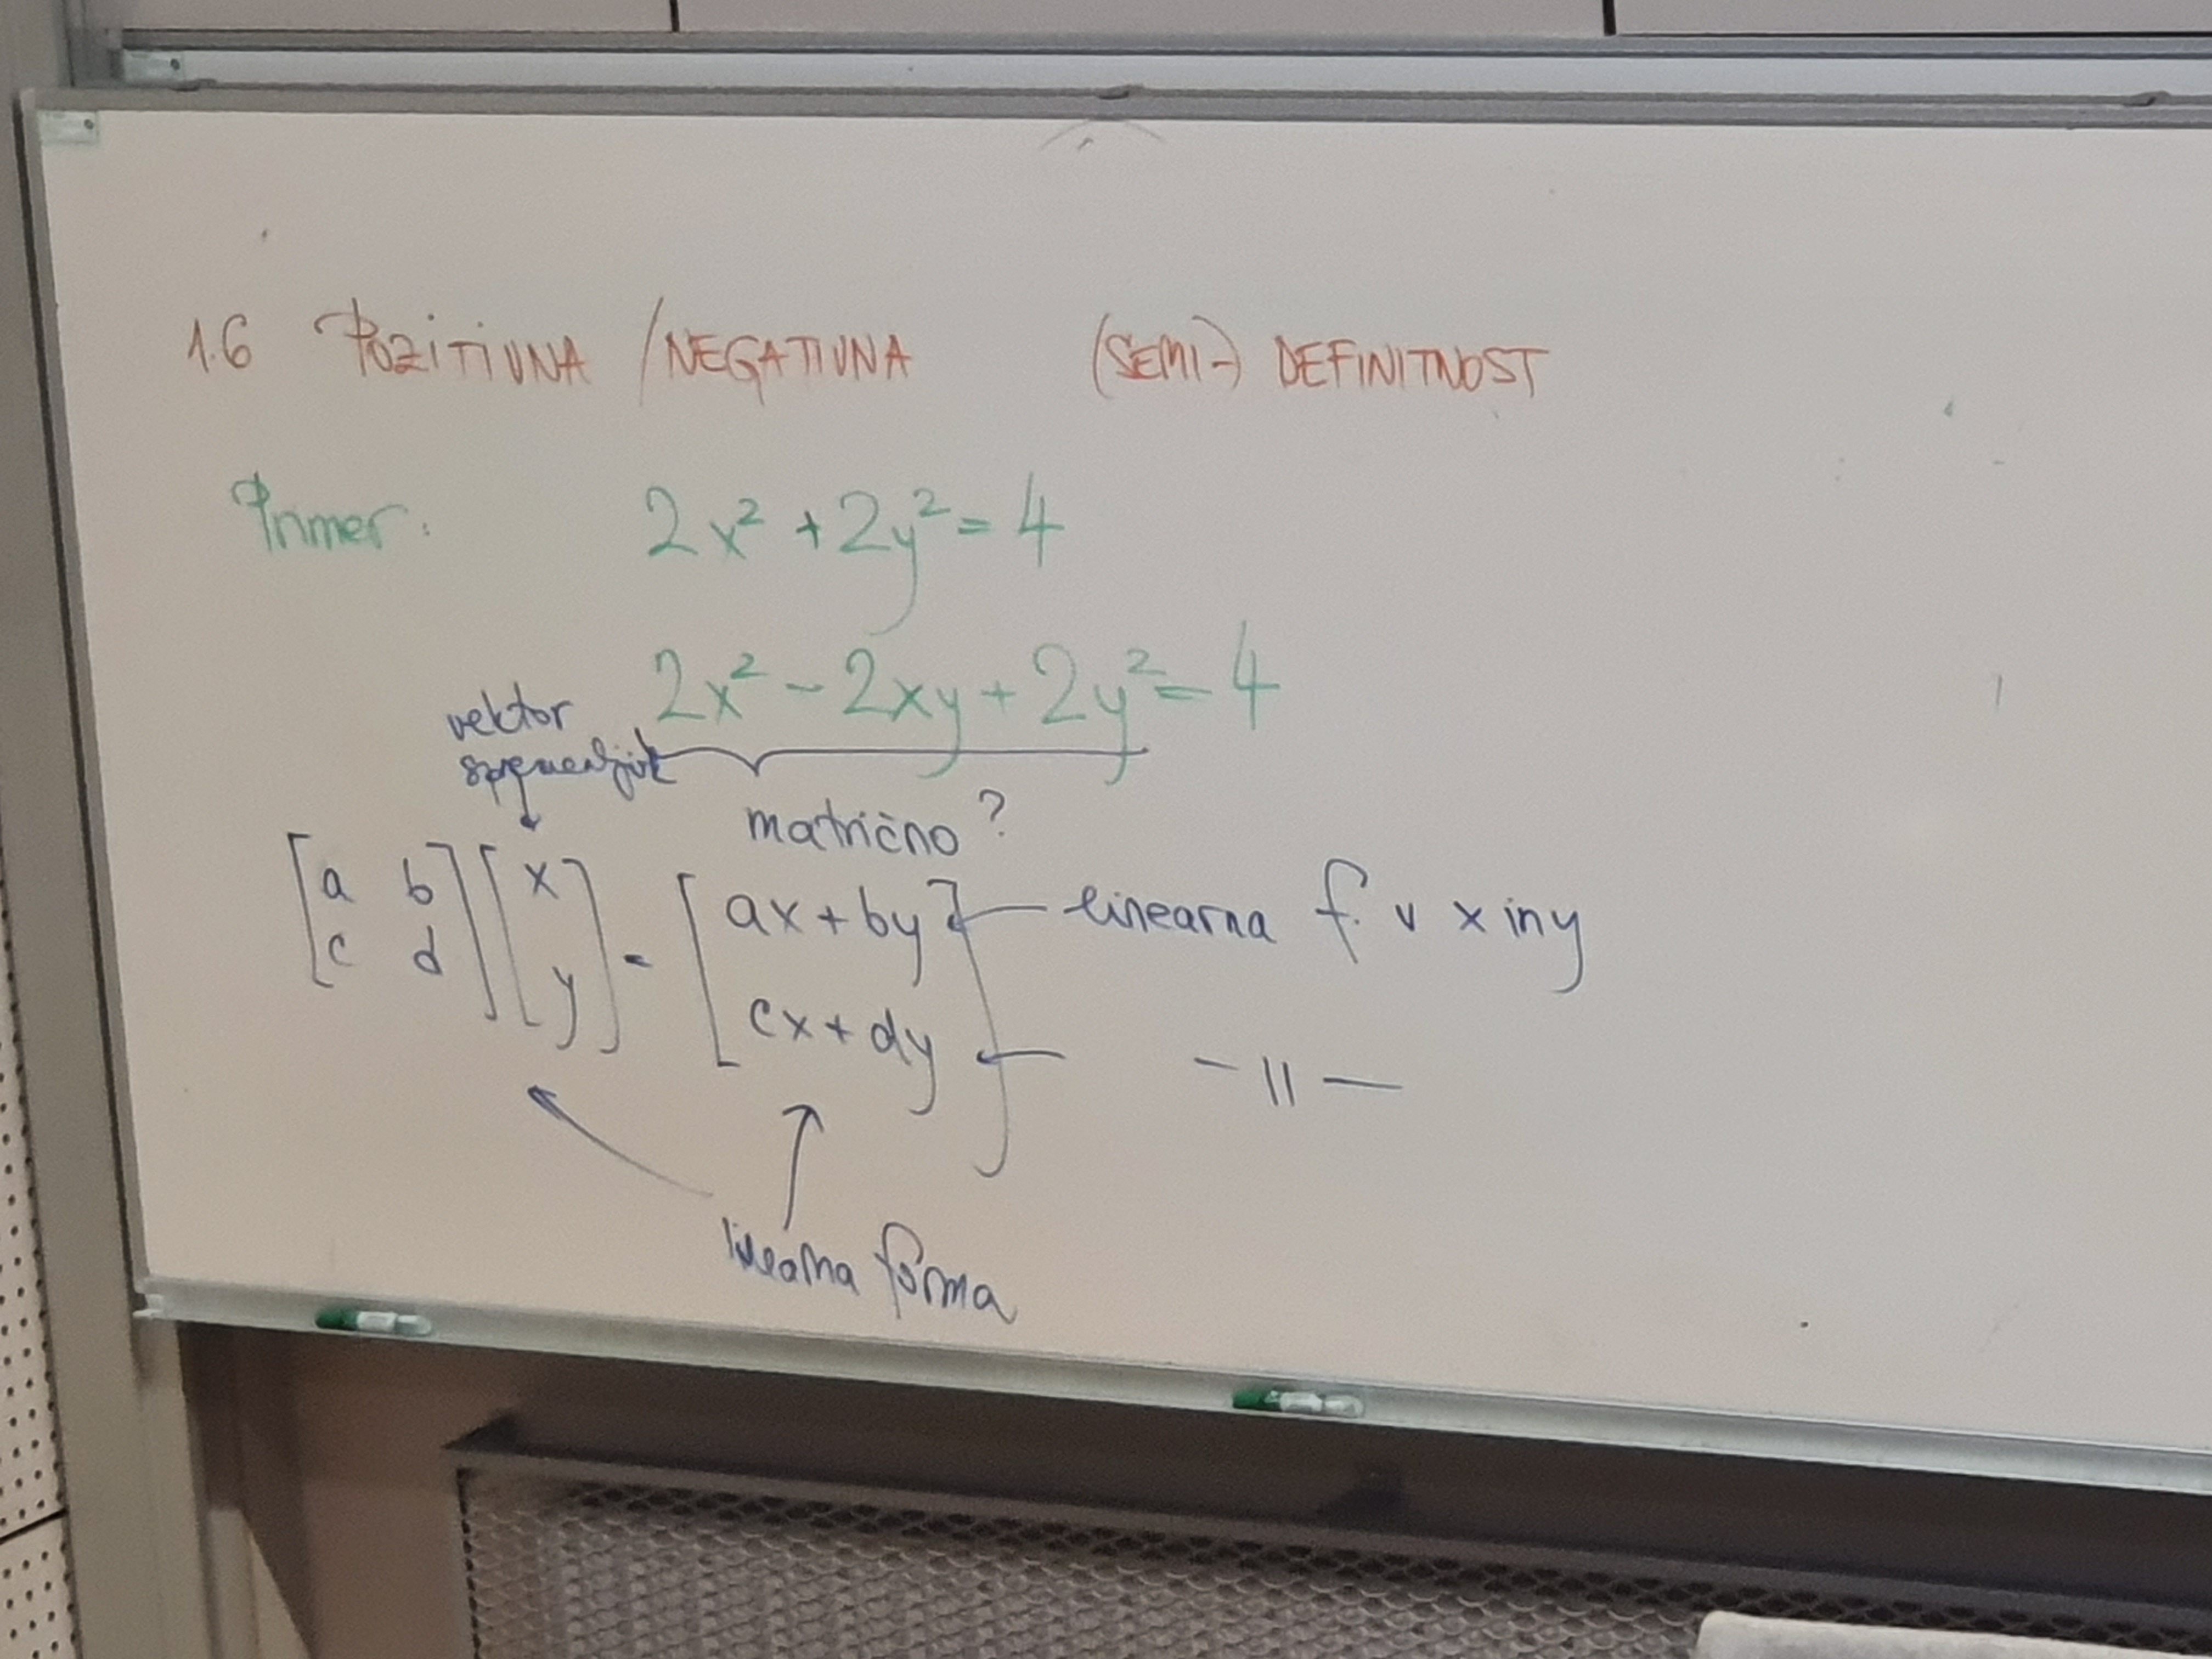 1.6 POZITIVNA / NEGATIVNA (SEMI-) DEFINITNOST
Primer: 2x² + 2y² = 4
2x² - 2xy + 2y² = 4
vektor
spremenljivk
matrično?
[a b] [x] = [ax + by] ← linearna f. v x in y
[c d] [y] [cx + dy] ← -||-
linearna forma